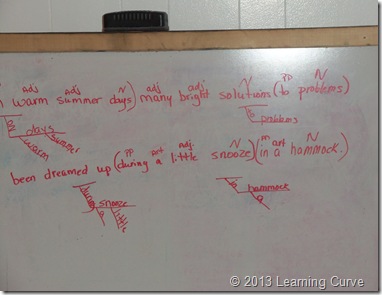 adj adj N adj adj N PP N
warm summer days) many bright solutions (to problems)
on days warm summer
to problems
PP art adj. N PP art N
been dreamed up (during a little snooze) (in a hammock.)
during snooze a little
in hammock a
© 2013 Learning Curve